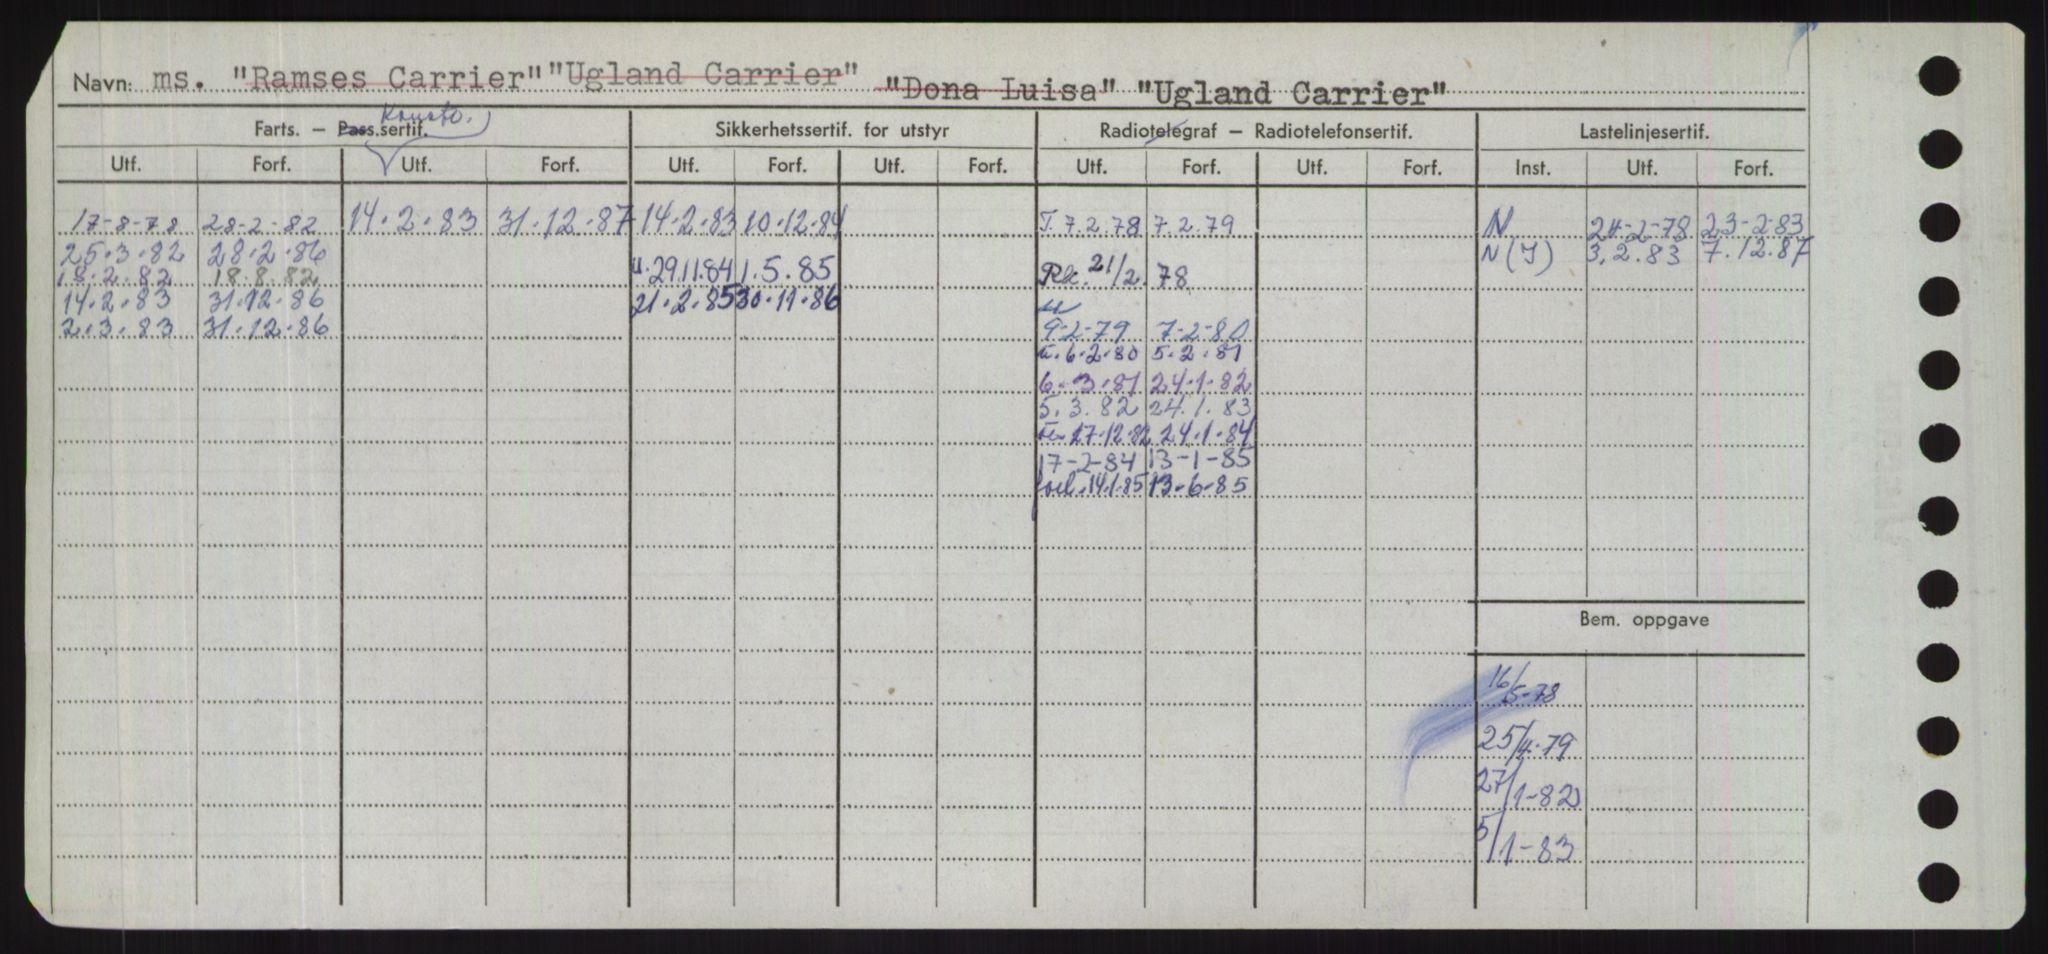 Navn: ms. "Ramses Carrier" "Ugland Carrier" "Dona Luisa" "Ugland Carrier"
Konstr.
Farts. – Pass.sertif. Sikkerhetssertif. for utstyr Radiotelegraf – Radiotelefonsertif. Lastelinjesertif.
Utf. Forf. Utf. Forf. Utf. Forf. Utf. Forf. Utf. Forf. Utf. Forf. Inst. Utf. Forf.
17-8-78 28-2-82 14.2.83 31.12.87 14.2.83 10.12.84 T. 7.2.78 7.2.79 N 24-2-78 23-2-83
25.3.82 28.2.86 N(I) 3.2.83 7.12.87
18.2.82 18.8.82 u. 29.11.84 1.5.85 Rk. 21/2.78
14.2.83 31.12.86 21.2.85 30.11.86
2.3.83 31.12.86 9-2-79 7-2-80
6.2.80 5.2.81
6.3.81 24.1.82
5.3.82 24.1.83
27.12.82 24.1.84
17-2-84 13-1-85
forl. 14.1.85 13.6.85
Bem. oppgave
16/5-78
25/4.79
27/1-82
5/1-83